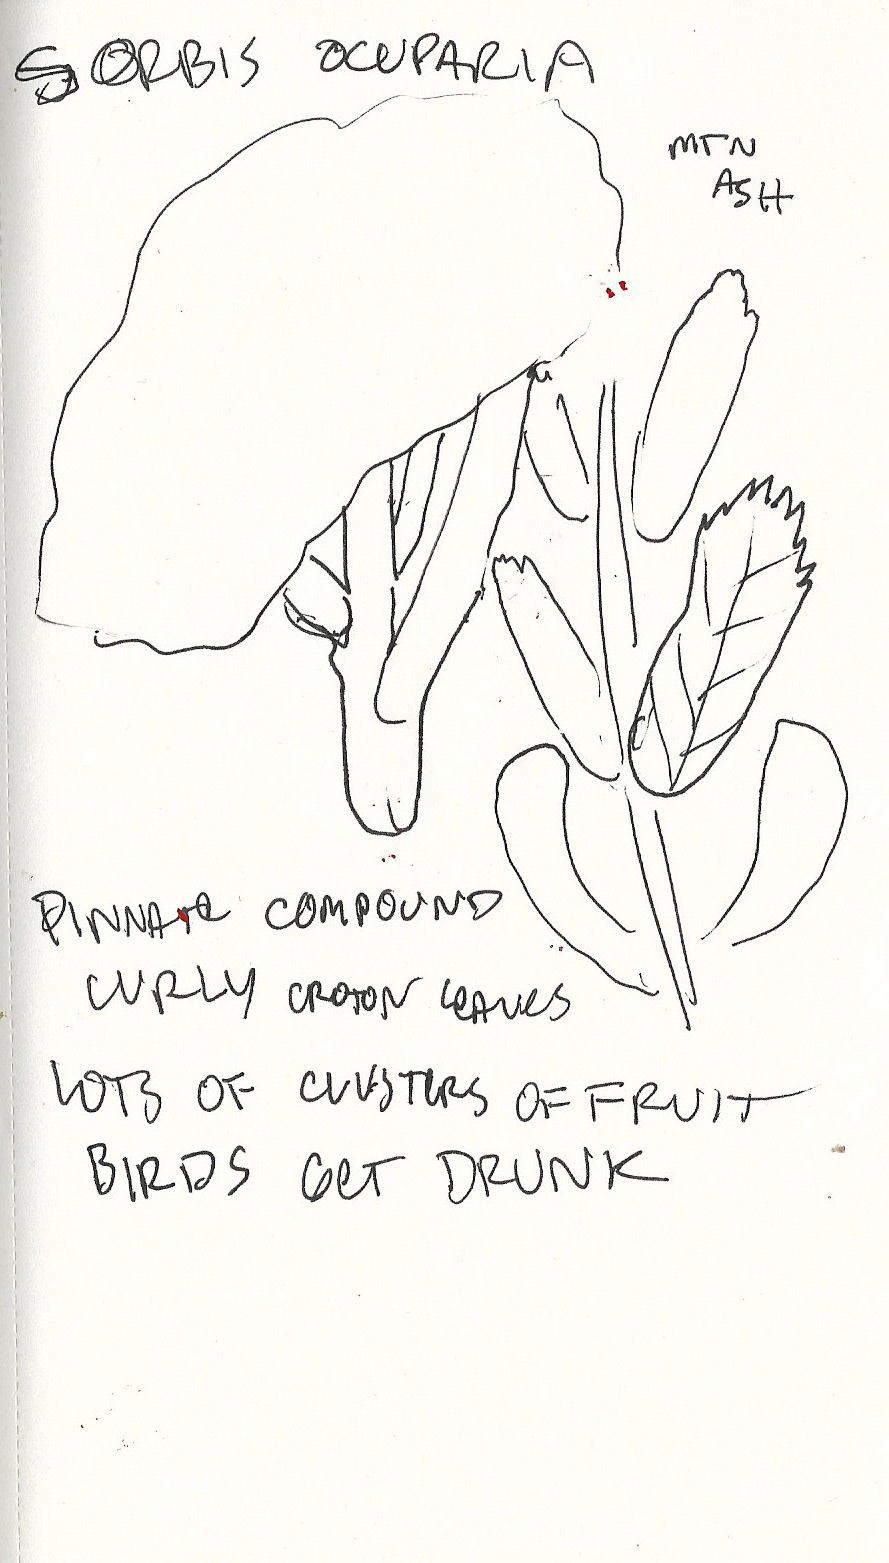 SORBIS OCUPARIA
MTN
ASH
PINNATE COMPOUND
CURLY CROTON LEAVES
LOTS OF CLUSTERS OF FRUIT
BIRDS GET DRUNK